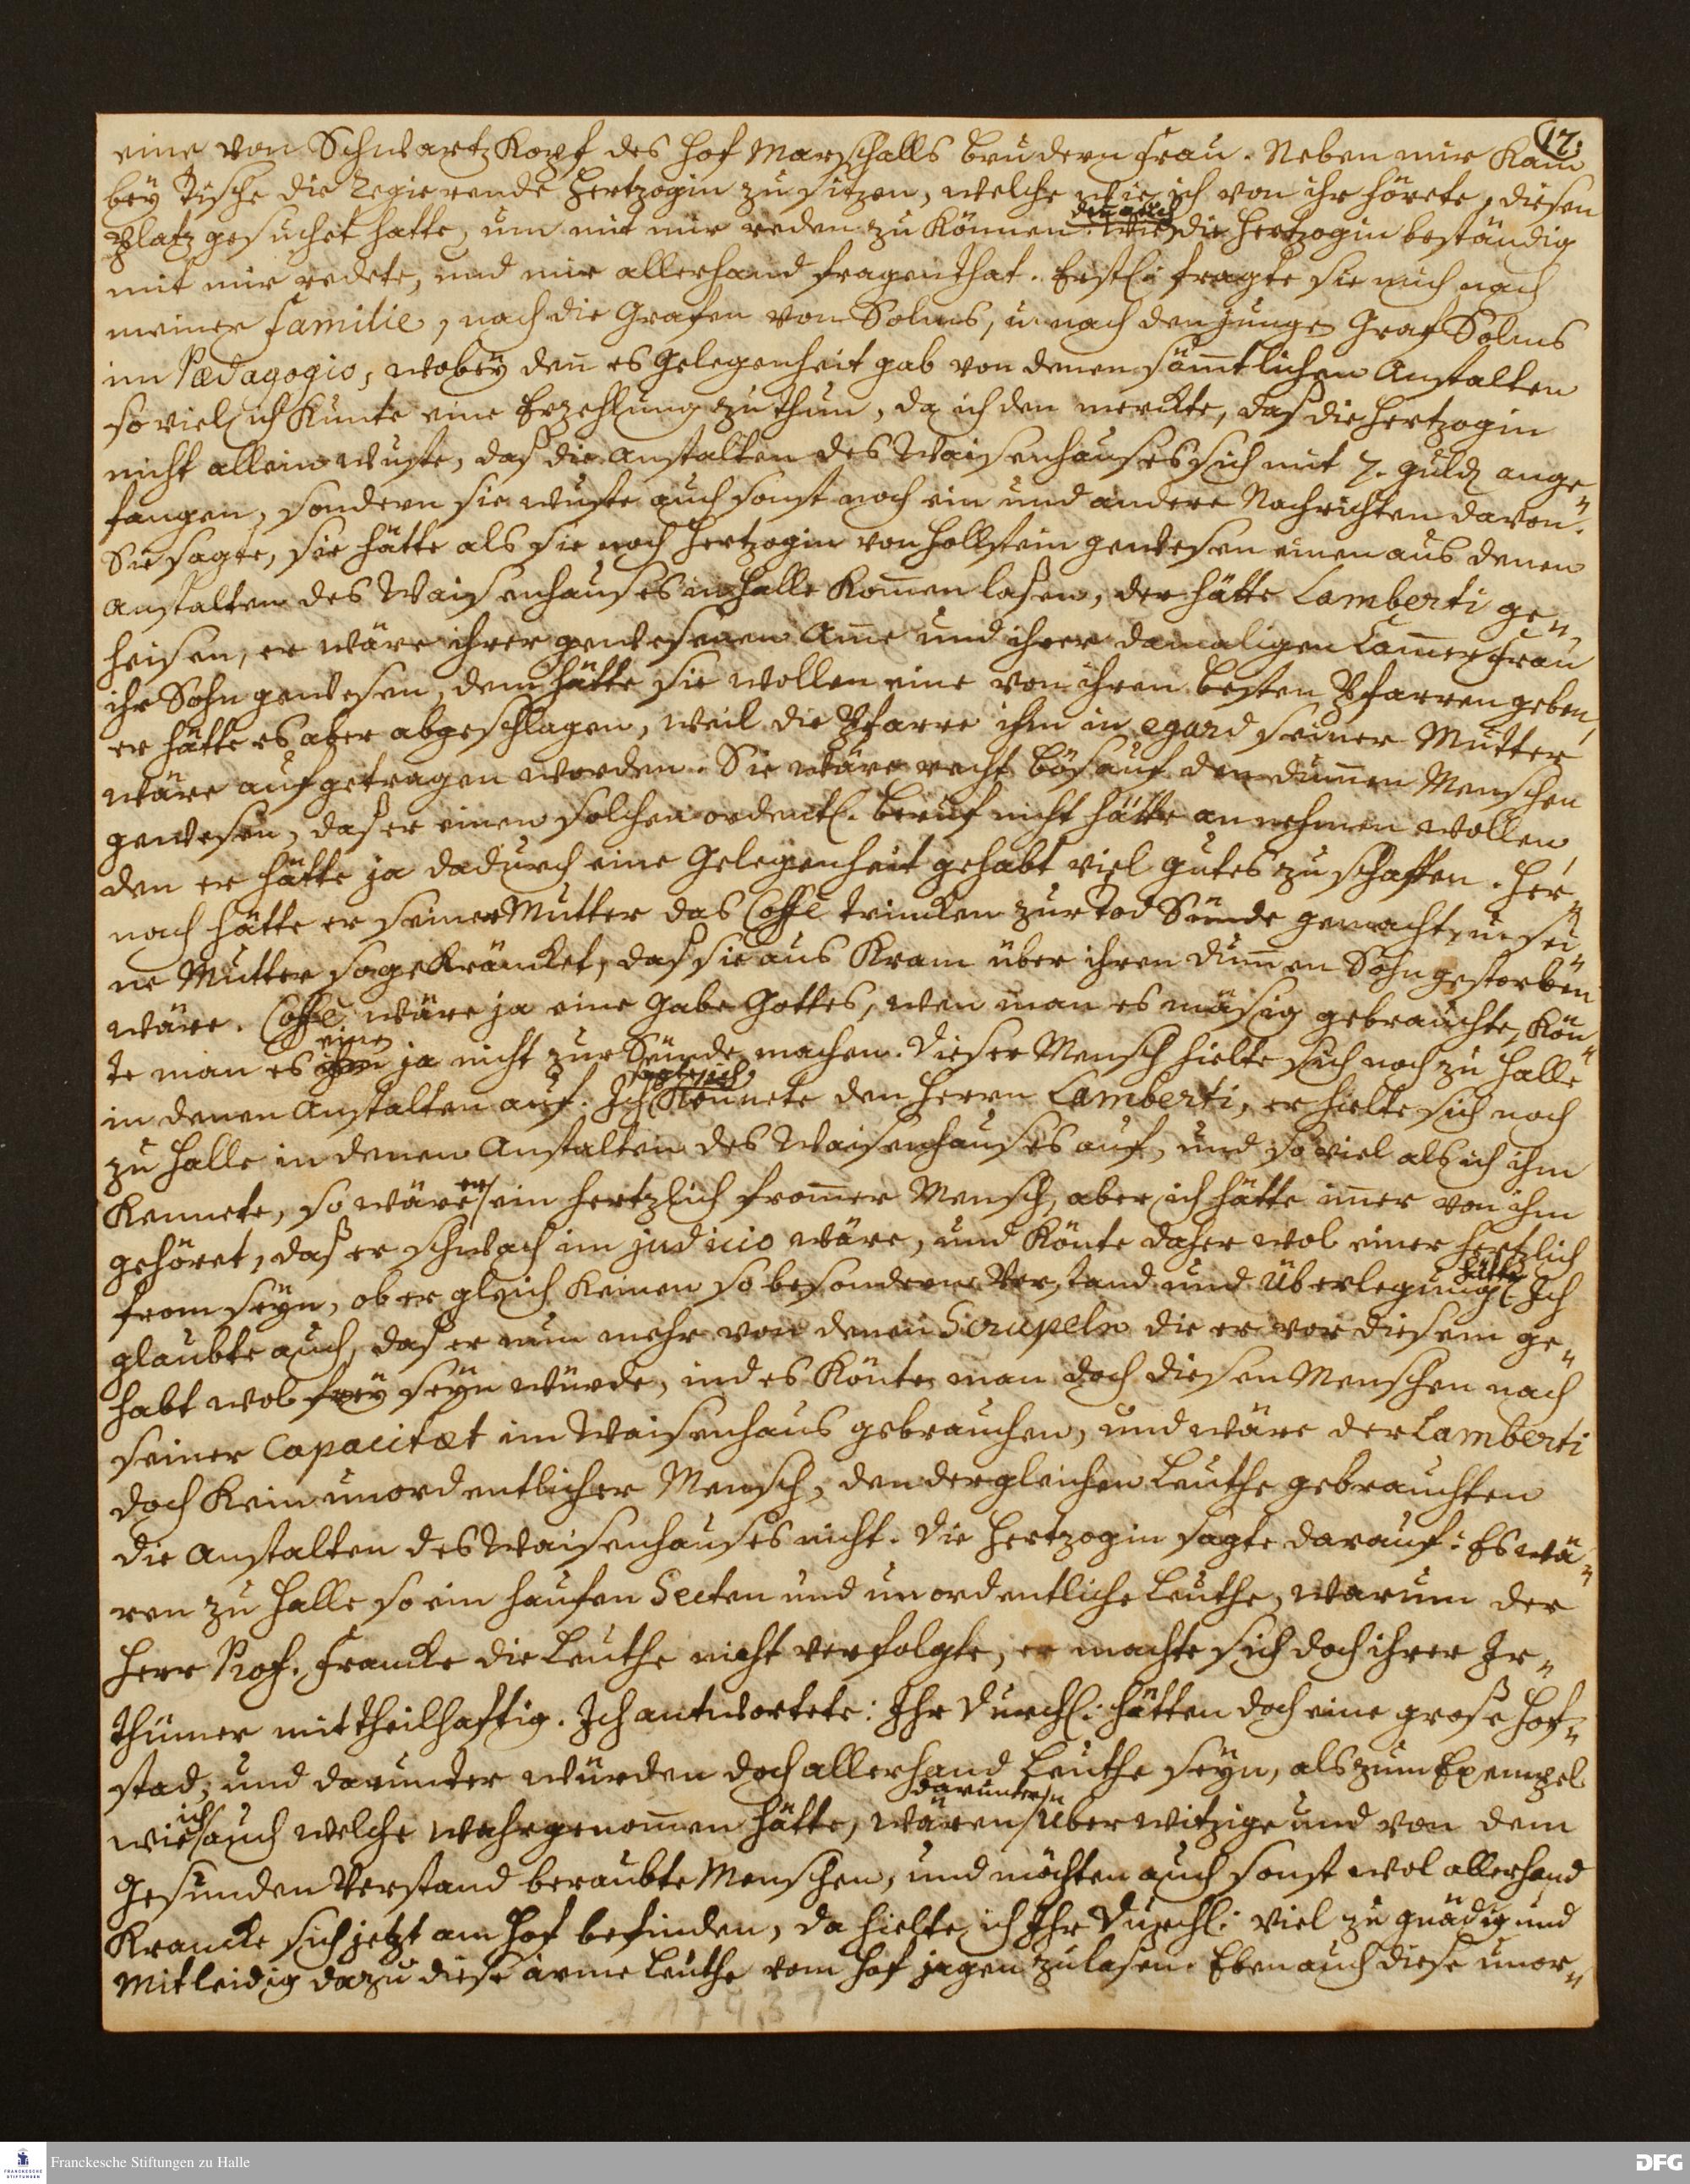 17.
eine von SchwartzKopf des Hof Marschalls brudern Frau. Neben mir Kam
bey Tische die Regierende Hertzogin zu sitzen, welche wie ich von ihr hörete, diesen
Platz gesuchet hatte, um mit mir reden zu Können. Wie
den auch
die Hertzogin beständig
mit mir redete, und mir allerhand fragen that. Erstl. fragte sie mich nach
meiner Familie, nach die Grafen von Solms, u. nach den jungen Graf Solms
im Pædagogio, wobey den̄ es Gelegenheit gab von denen säm̄tlichen Anstalten
so viel ich Kunte eine Erzehlung zu thun, da ich den merckte, daß die Hertzogin
nicht allein wuste, daß die Anstalten des Waisenhauses sich mit 7. Guld ange„
fangen, sondern sie wuste auch sonst noch ein und andere Nachrichten davon.
Sie sagte, sie hätte als sie noch Hertzogin von Hollstein gewesen einen aus denen
Anstalten des Waisenhauses in Halle Kom̄en laßen, der hätte Lamberti ge„
heisen, er wäre ihrer gewesenen Am̄e und ihrer damaligen Cam̄erfrau
ihr Sohn gewesen, dem hätte sie wollen eine von ihren besten Pfarren geben,
er hätte es aber abgeschlagen, weil die Pfarre ihm in egard seiner Mutter
wäre aufgetragen worden. Sie wäre recht bös auf den dum̄en Menschen
gewesen, daß er einen solchen ordentl. beruf nicht hätte annehmen wollen,
den er hätte ja dadurch eine Gelegenheit gehabt viel gutes zu schaffen. Her„
nach hätte er seiner Mutter das Coffe trincken zur Tod Sünde gemacht, u. sei„
ne Mutter so gekräncket, daß sie aus Kram über ihren dum̄en Sohn gestorben
wäre. Coffe wäre ja eine Gabe Gottes, wen man es mäsig gebrauchte, Kön„
te man es
einen
ja nicht zur Sünde machen. Dieser Mensch hielte sich noch zu Halle
in denen Anstalten auf. Ich
sagte, ich
Kennete den Herrn Lamberti, er hielte sich noch
zu Halle in denen Anstalten des Waisenhauses auf, und so viel als ich ihm
Kennete, so wäre
er
ein hertzlich from̄er Mensch, aber ich hätte im̄er von ihm
gehöret, daß er schwach im judicio wäre, und Könte daher wol einer hertzlich
from seyn, ob er gleich Keinen so besondern Verstand und Überlegung
hätte.
Ich
glaubte auch, daß er nun mehr von denen Scrupeln die er vor diesem ge„
habt wol frey seyn würde, indes Könte man doch diesen Menschen nach
seiner Capacitæt im Waisenhaus gebrauchen, und wäre der Lamberti
doch Kein unordentlicher Mensch, den dergleichen Leuthe gebrauchten
die Anstalten des Waisenhauses nicht. Die Hertzogin sagte darauf: Es wä„
ren zu Halle so ein haufen Secten und unordentliche Leuthe, warum der
Herr Prof. Francke die Leuthe nicht verfolgte, er machte sich doch ihrer Ir„
thümer mit theilhaftig. Ich antwortete: Ihr Durchl. hätten doch eine grose Hof„
stad, und darunter würden doch allerhand Leuthe seyn, als zum Exempel
wie
ich
auch welche wahrgenom̄en hätte, wären
darunter
überwitzige und von dem
Gesunden Verstand beraubte Menschen, und möchten auch sonst wol allerhand
Krancke sich jetzt am Hof befinden, da hielte ich Ihr Durchl. viel zu gnädig und
Mitleidig dazu diese arme Leuthe vom Hof jagen zulasen. Eben auch diese unor„
Franckesche Stiftungen zu Halle
DFG